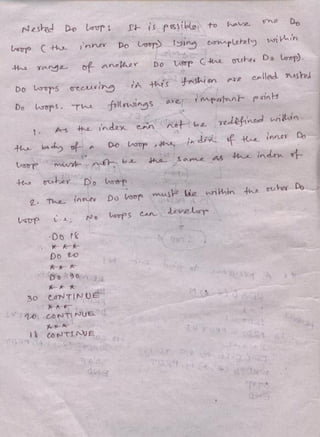 Nested Do loop: It is possible to have one Do
loop (the inner Do loop) lying completely within
the range of another Do loop (the outer Do loop)
Do loops occuring in this fashion are called nested
Do loops. The followings are important points
1. As the index can not be redefined within
the body of a Do loop, the index of the inner Do
loop must not be the same as the index of
the outer Do loop
2. The inner Do loop must lie within the outer Do
loop i.e; No loops can
Do 18
* * *
Do 20
* * *
Do 30
* * *
30 CONTINUE
* * *
20 CONTINUE
* * *
18 CONTINUE